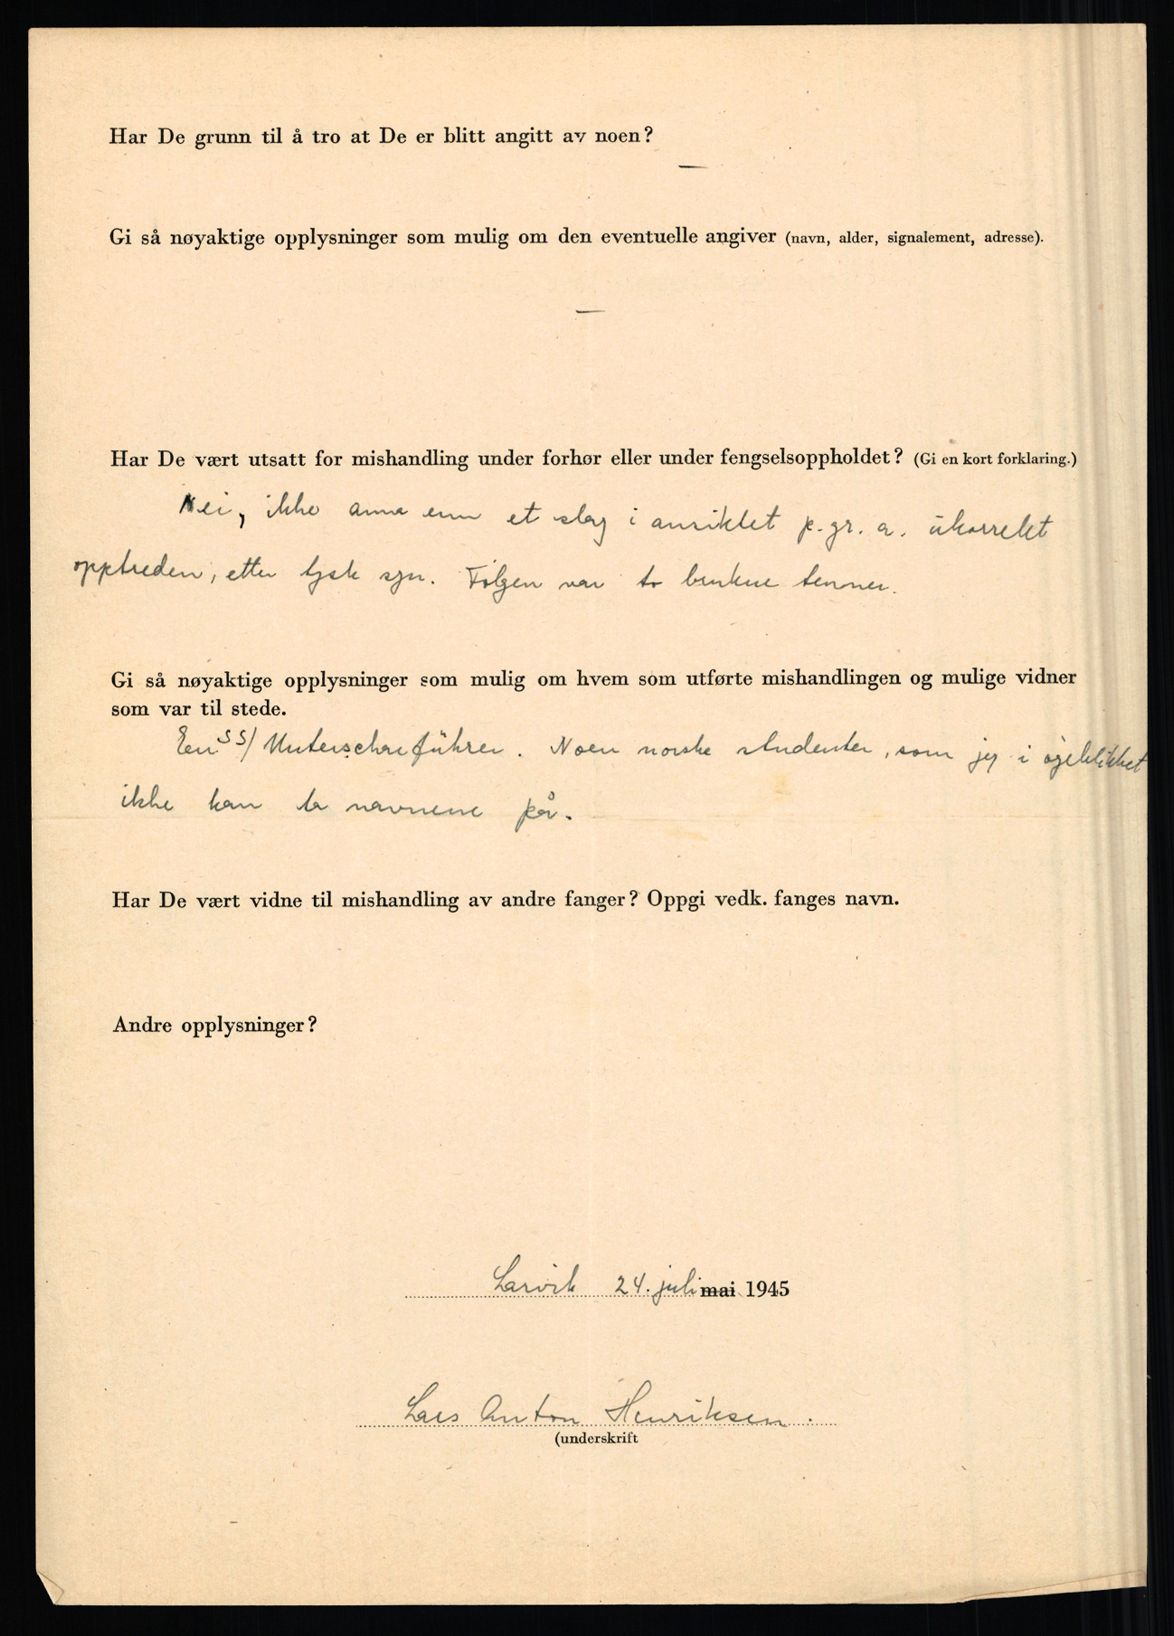 Har De grunn til å tro at De er blitt angitt av noen?
—
Gi så nøyaktige opplysninger som mulig om den eventuelle angiver (navn, alder, signalement, adresse).
—
Har De vært utsatt for mishandling under forhør eller under fengselsoppholdet? (Gi en kort forklaring.)
Nei, ikke anna enn et slag i ansiktet p.gr.a. ukorrekt
opptreden, etter tysk syn. Følgen var to brukne tenner.
Gi så nøyaktige opplysninger som mulig om hvem som utførte mishandlingen og mulige vidner
som var til stede.
Een SS/Unterscharführer. Noen norske studenter, som jeg i øieblikket
ikke kan ta navnene på.
Har De vært vidne til mishandling av andre fanger? Oppgi vedk. fanges navn.
Andre opplysninger?
Larvik 24. juli mai 1945
Lars Anton Henriksen.
(underskrift